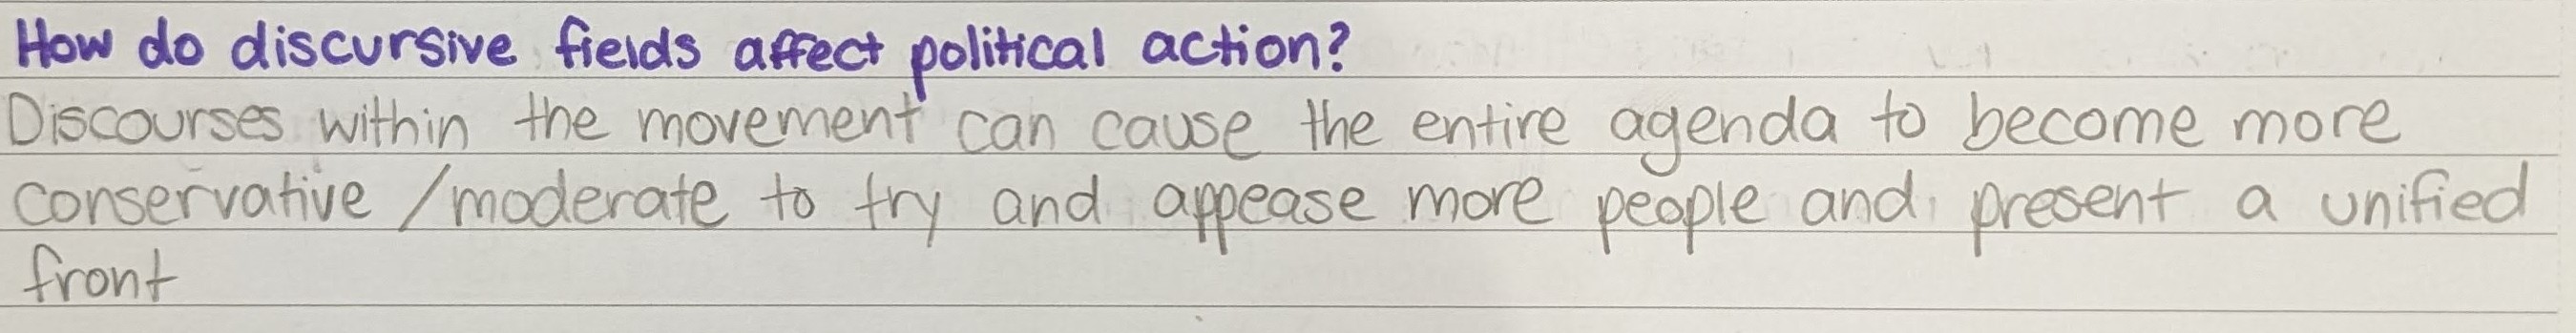 How do discursive fields affect political action?
Discourses within the movement can cause the entire agenda to become more
conservative /moderate to try and appease more people and present a unified
front